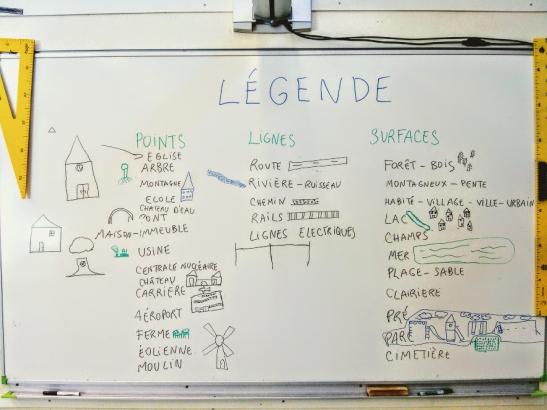 LÉGENDE
POINTS
EGLISE
ARBRE
MONTAGNE
ECOLE
CHATEAU D'EAU
PONT
MAISON-IMMEUBLE
USINE
CENTRALE NUCÉAIRE
CHÂTEAU
CARRIÈRE
AÉROPORT
FERME
ÉOLIENNE
MOULIN
LIGNES
ROUTE
RIVIÈRE-RUISSEAU
CHEMIN
RAILS
LIGNES ELECTRIQUES
SURFACES
FORÊT-BOIS
MONTAGNEUX-PENTE
HABITÉ-VILLAGE-VILLE-URBAIN
LAC
CHAMPS
MER
PLAGE-SABLE
CLAIRIERE
PRÉ
PARC
CIMETIÈRE